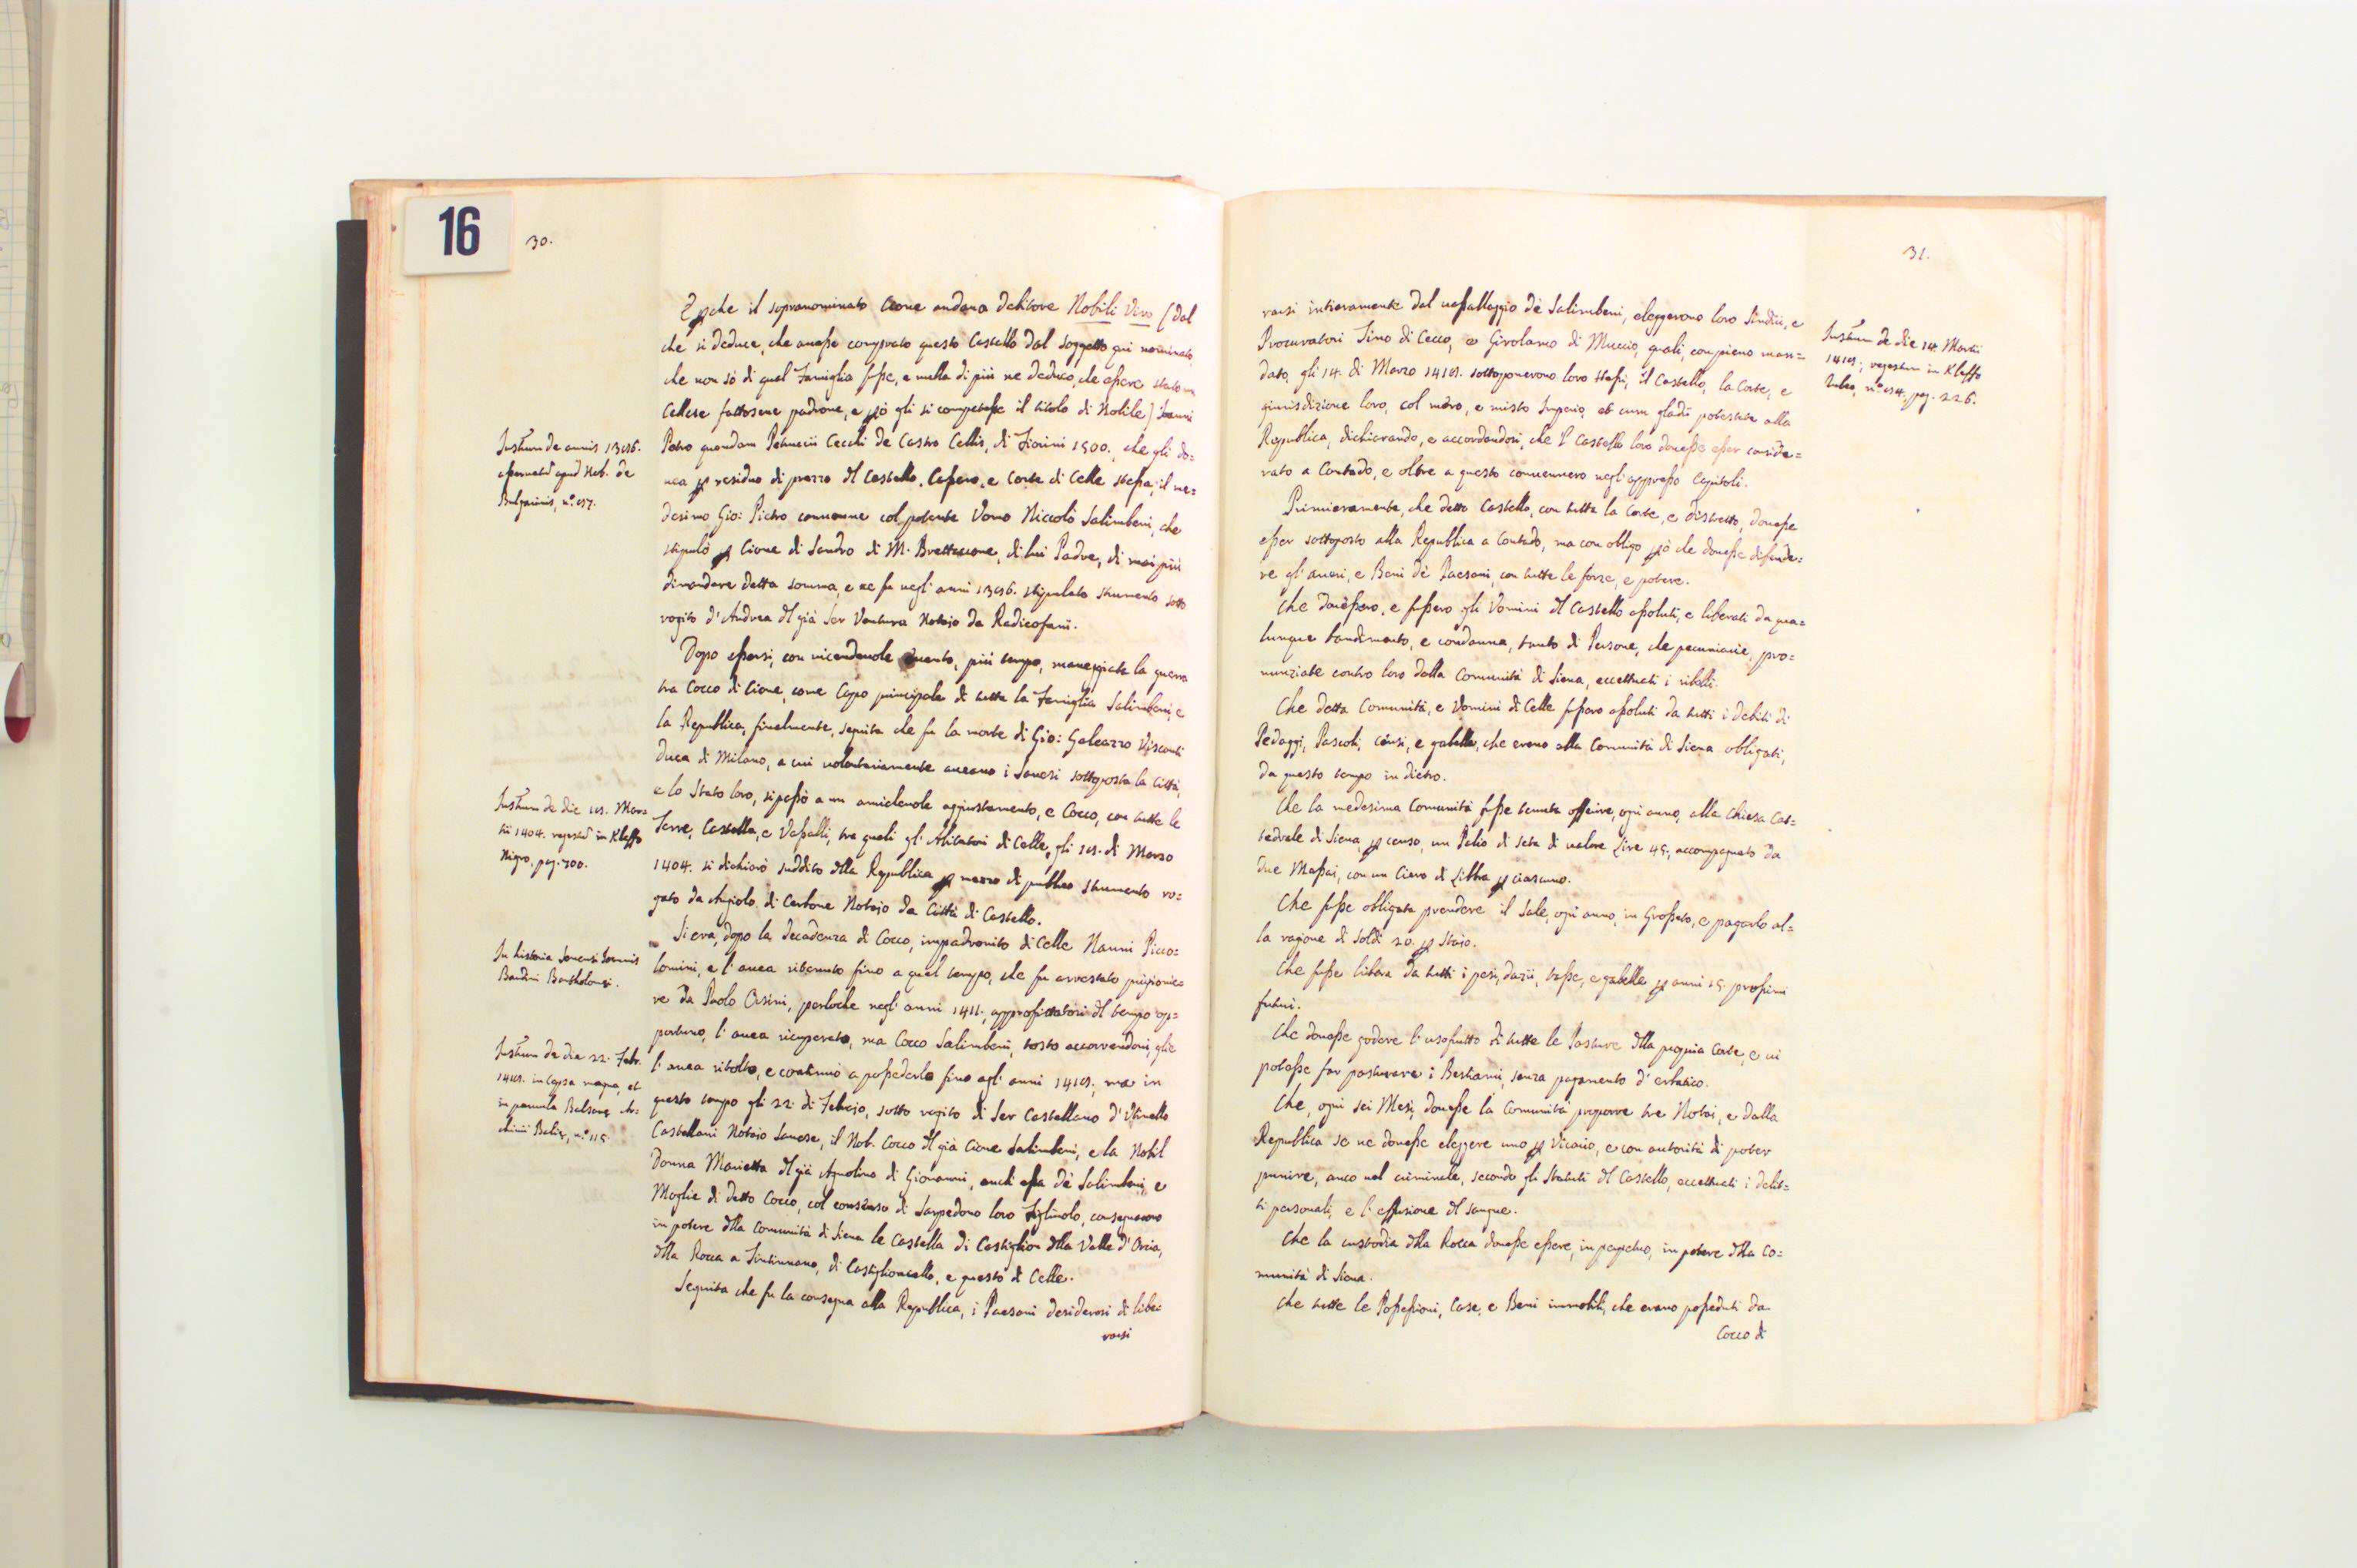 16
30.
E p che il sopranominato Cione andava debitore Nobili Viro (dal
che si deduce, che avesse comprato questo Castello dal soggetto qui nominato,
che non sò di qual Famiglia fusse, e nulla di più ne deduco, che essere stato un
Cellese fattosene padrone, e p ciò gli si competesse il titolo di Nobile) Joanni
Petro quondam Petruccii Cecchi de Castro Cellis, di Fiorini 1500., che gli do=
vea p residuo di prezzo dl Castello, Cassero, e Corte di Celle stessa, il me=
desimo Gio: Pietro convenne col potente Uomo Niccolò Salimbeni, che
stipulò p Cione di Sandro di M. Brettacone, di lui Padre, di mai più
dimandare detta somma, e ne fu negl' anni 1396. stipulato strumento sotto
rogito d' Andrea dl già Ser Ventura Notaio da Radicofani.
Instrum de annis 1396.
asservatum apud Nob. de
Bulgarinis, n.º 97.
Dopo essersi, con vicendevole evento, più tempo, maneggiata la guerra
tra Cocco di Cione, come Capo principale di tutta la Famiglia Salimbeni, e
la Republica, finalmente, seguita che fu la morte di Gio: Galeazzo Visconti
Duca di Milano, a cui volontariamente aveano i Sanesi sottoposta la Città,
e lo Stato loro, si passò a un amichevole aggiustamento, e Cocco, con tutte le
Terre, Castella, e Vassalli, tra quali gl' Abitatori di Celle, gli 19. di Marzo
1404. si dichiarò suddito dlla Republica p mezzo di publico strumento ro=
gato da Angiolo di Carbone Notaio da Città di Castello.
Instrum de die 19. Mar=
tii 1404. regestum in Kleffo
Nigro, pag. 300.
Si era, dopo la decadenza di Cocco, impadronito di Celle Nanni Picco=
lomini, e l' avea ritenuto fino a quel tempo, che fu arrestato prigionie=
re da Paolo Orsini, perloche negli anni 1411., approfittatosi dl tempo op=
portuno, l' avea ricuperato, ma Cocco Salimbeni, tosto accorrendovi, glie
l' avea ritolto, e continuò a possederlo fino agl' anni 1419., ma in
questo tempo gli 22. di Febraio, sotto rogito di Ser Castellano d' Utinello
Castellani Notaio Sanese, il Nob. Cocco dl già Cione Salimbeni, e la Nobil
Donna Marietta dl già Agnolino di Giovanni, anch' essa de' Salimbeni, e
Moglie di detto Cocco, col consenso di Sarpedono loro Figlinolo, consegnarono
in potere dlla Comunità di Siena le Castella di Castiglion dlla Valle d' Orcia,
dlla Rocca a Tintinnano, di Castiglioncello, e questo di Celle.
In historia Senensi Joannis
Bandini Bartholomei.
Instrum de die 22. Febr.
1419. in capsa magna, et
in parvula Balzana Ar=
chivii Balie, n.º 115.
Seguita che fu la consegna alla Republica, i Paesani desiderosi di libe=
rarsi
31.
rarsi intieramente dal vassallaggio de' Salimbeni, eleggerono loro Sindici, e
Procuratori Tino di Cecco, e Girolamo di Muccio, quali, con pieno man=
dato, gli 14. di Marzo 1419. sottoponerono loro stessi, il Castello, la Corte, e
giurisdizione loro, col mero, e misto Imperio, et cum gladii potestate alla
Republica, dichiarando, e accordandosi, che 'l Castello loro dovesse esser conside=
rato a Contado, e oltre a questo convennero negl' appresso Capitoli.
Instrum de die 14. Martii
1419., regestum in Kleffo
Rubeo, n.º 94., pag. 226.
Primieramente, che detto Castello, con tutta la Corte, e distretto, dovesse
esser sottoposto alla Republica a Contado, ma con obligo p ciò che dovesse difende=
re gl' averi, e Beni de' Paesani, con tutte le forze, e potere.
Che dovessero, e fussero gli Vomini dl Castello assoluti, e liberati da qua=
lunque bandimento, e condanna, tanto di Persone, che pecuniarie, pro=
nunziate contro loro dalla Comunità di Siena, eccettuati i ribelli.
Che detta Comunità, e Vomini di Celle fussero assoluti da tutti i debiti di
Pedaggi, Pascoli, censi, e gabelle, che erano alla Comunità di Siena obligati,
da questo tempo in dietro.
Che la medesima Comunità fusse tenuta offerire, ogni anno, alla Chiesa Cat=
tedrale di Siena, p censo, un Palio di seta di valore Lire 45., accompagnato da
due Massai, con un Ciero di Libbra p ciascuno.
Che fusse obligata prendere il Sale, ogni anno, in Grosseto, e pagarlo al=
la ragione di soldi 20. p Staio.
Che fusse libera da tutti i pesi, dazii, tasse, e gabelle p anni 15. prossimi
futuri.
Che dovesse godere l' usofrutto di tutte le Pasture dlla propria Corte, e vi
potesse far pasturare i Bestiami, senza pagamento d' erbatico.
Che, ogni sei Mesi, dovesse la Comunità proporre tre Notai, e dalla
Republica se ne dovesse eleggere uno p Vicario, e con autorità di poter
punire, anco nel criminale, secondo gli Statuti dl Castello, eccettuati i delit=
ti personali, e l' effusione dl sangue.
Che la custodia dlla Rocca dovesse essere, in perpetuo, in potere dlla Co=
munità di Siena.
Che tutte le Possessioni, Case, e Beni immobili, che erano posseduti da
Cocco di